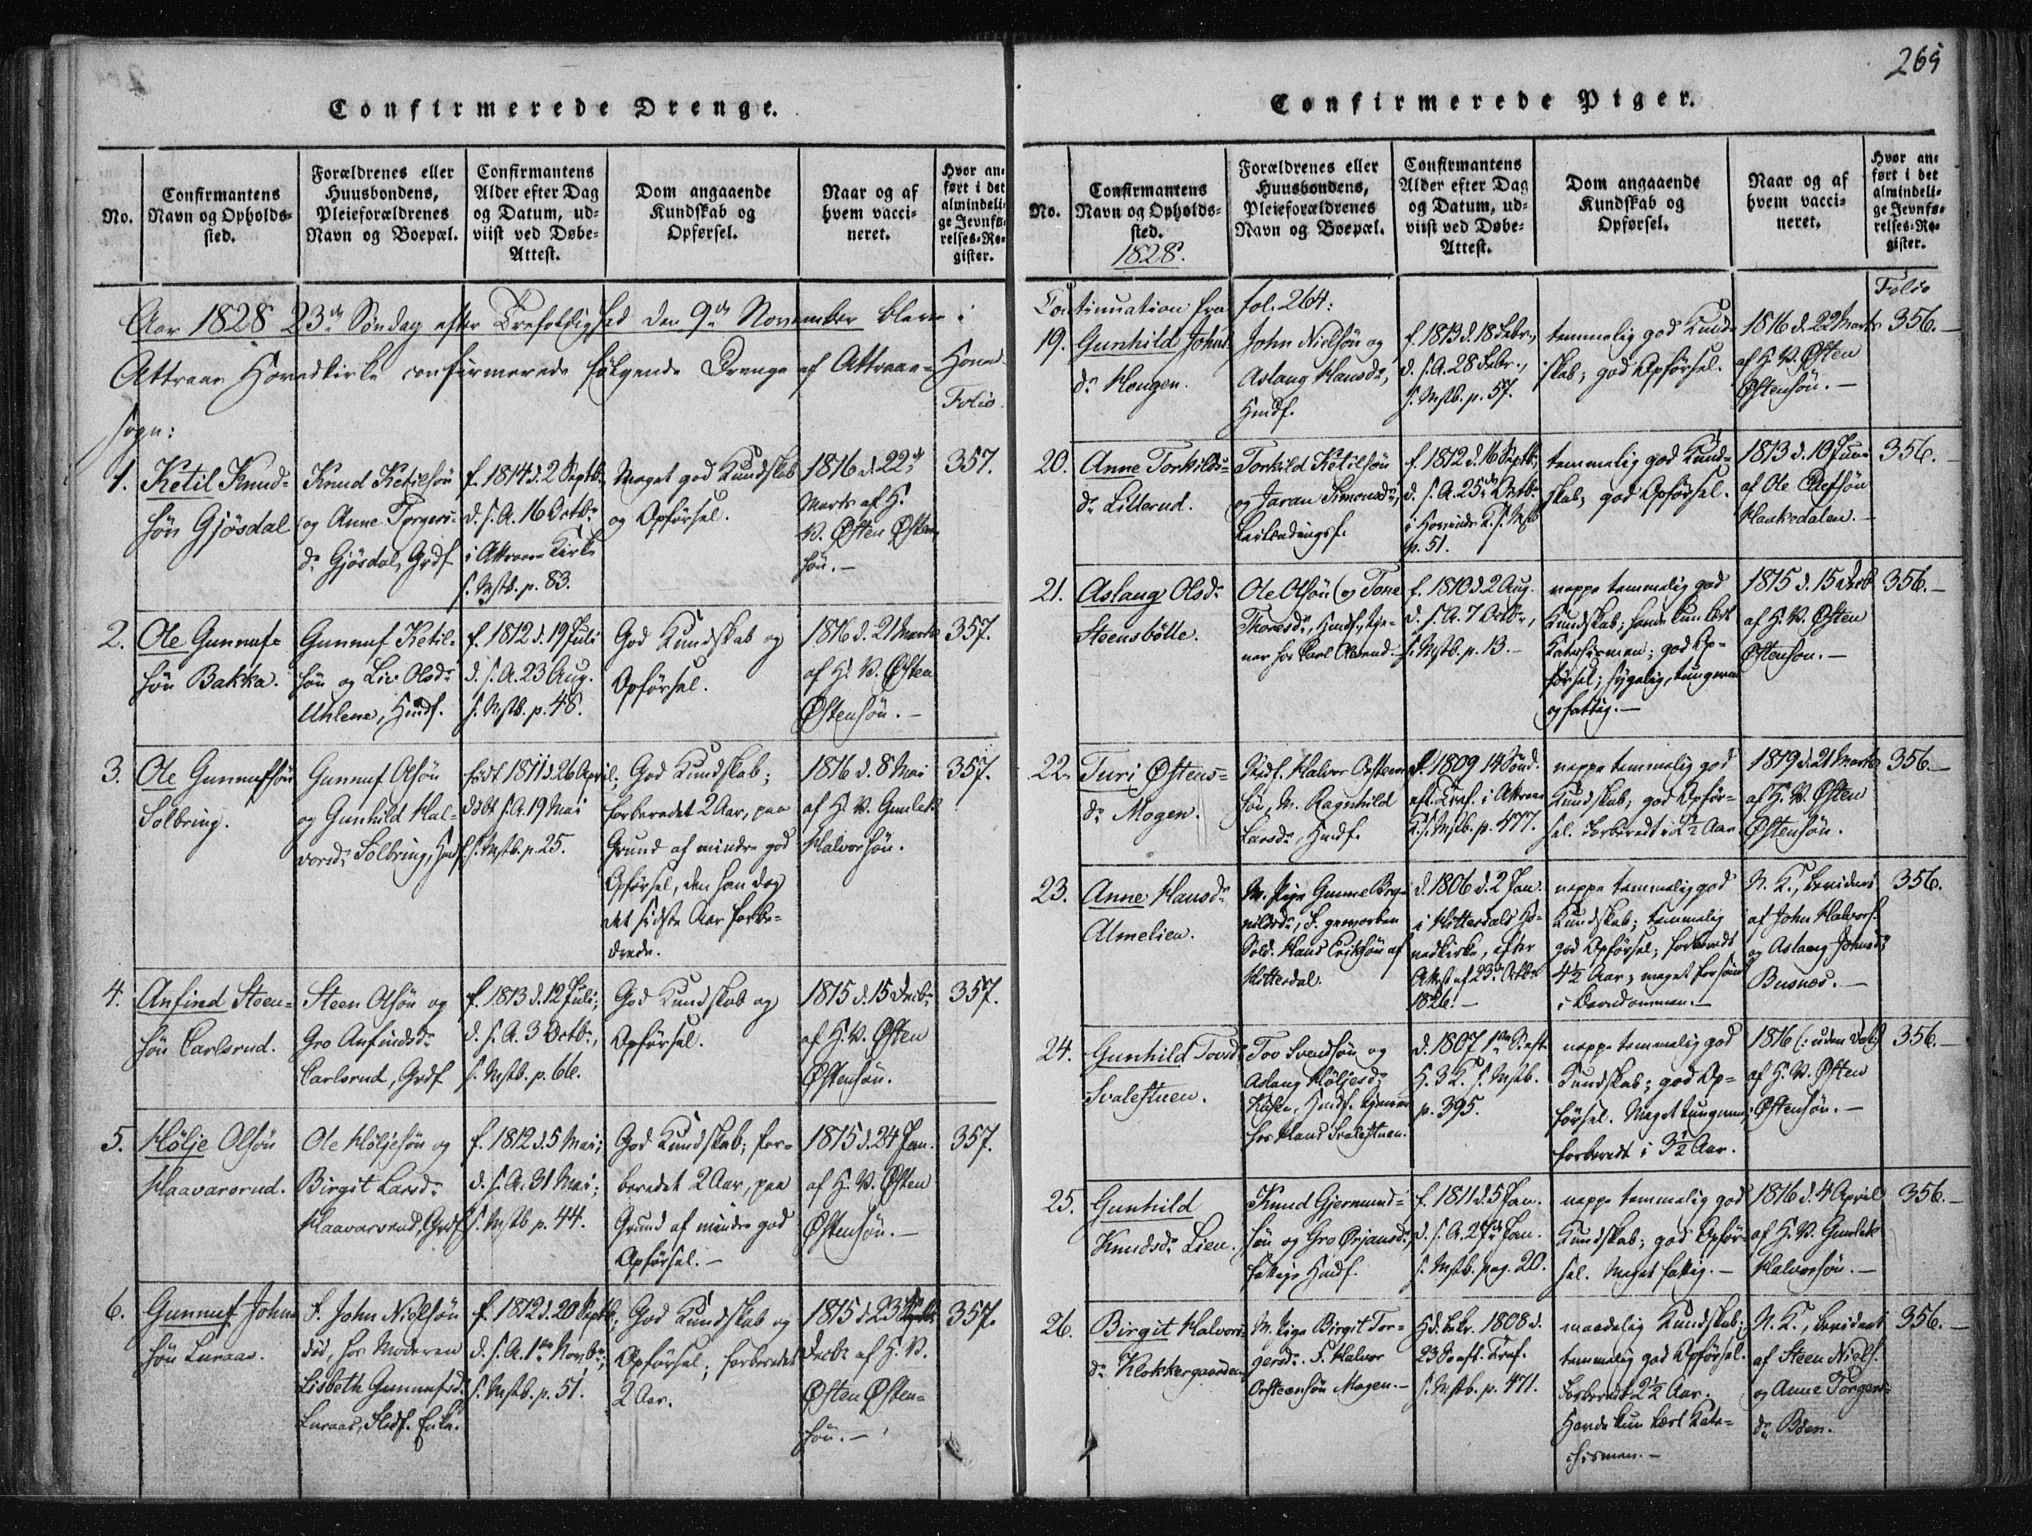 Confirmerede Drenge.
No.
Confirmantens
Navn og Opholds-
sted.
Forældrenes eller
Huusbondens,
Pleieforældrenes
Navn og Boepæl.
Confirmantens
Alder efter Dag
og Datum, ud-
viist ved Døbe-
Attest.
Dom angaaende
Kundskab og
Opførsel.
Naar og af
hvem vacci-
neret.
Hvor an-
ført i det
almindeli-
ge Jevnfø-
relses-Re-
gister.
Aar 1828 23de Søndag efter Trefoldighed den 9de November bleve i
Attraae Hovedkirke confirmerede følgende Drenge af Attraae-Hoved-
Sogn:
Folio.
1.
Ketil Knud-
søn Gjøsdal
Knud Ketilsøn
og Anne Torgers-
dr Gjøsdal, Grdf
f. 1814 d. 2 Septb.
d. s. A. 16 Octbr
i Attraae Kirke
s. Mstb. p. 83.
Meget god Kundskab
og Opførsel.
1816 d. 22de
Marts af H.
V. Østen Østen-
søn.—
357.
2.
Ole Gunnuf-
søn Bakka.
Gunnuf Ketil-
søn og Liv Olsdr
Uhlene, Hmdf.
f. 1812 d. 19 Juli
d. s. A. 23 Aug.
s. Mstb. p. 48.
God Kundskab og
Opførsel.
1816 d. 21 Marts
af H. V. Østen
Østensøn.—
357.
3.
Ole Gunnufsøn
Solbring.
Gunnuf Olsøn
og Gunhild Hal-
vordr Solbring, Hmdf
født 1811 d. 26 April,
døbt s. A. 19 Mai
s. Mstb. p. 25.
God Kundskab;
forberedet 2 Aar, paa
Grund af mindre god
Opførsel, den han dog
det sidste Aar forbe-
drede.
1816 d. 8 Mai
af H. V. Gunlek
Halvorsøn.
357.
4.
Anfind Steen-
søn Carlsrud.
Steen Olsøn og
Gro Anfindsdr
Carlsrud, Grdf
f. 1813 d. 12 Juli;
d. s. A. 3 Octbr,
s. Mstb. p. 66.
God Kundskab og
Opførsel.
1815 d. 15 Decbr
af H. V. Østen
Østensøn.
357.
5.
Hølje Olsøn
Haavarsrud.
Ole Høljesøn og
Birgit Larsdr
Haavarsrud, Grdf
f. 1812 d. 5 Mai;
d. s. A. 31 Mai;
s. Mstb p. 44.
God Kundskab; for-
beredet 2 Aar, paa
Grund af mindre god
Opførsel.—
1815 d. 24 Jan.
af H. V. Østen
Østensøn.—
357.
6.
Gunnuf John-
søn Luraas.
F. John Nielsøn
død, hos Moderen
Lisbeth Gunnufsd.
Luraas, Enke.
f. 1812 d. 20 Septb.
d. s. A. 1ste Novbr;
s. Mstb. p. 51.
God Kundskab og
Opførsel; forberedet
2 Aar.
1815 d. 23de
Decbr af H. V.
Østen Østen-
søn.—
357.
265
Confirmerede Piger.
No.
Confirmantens
Navn og Opholds-
sted.
1828.
Forældrenes eller
Huusbondens,
Pleieforældrenes
Navn og Boepæl.
Confirmantens
Alder efter Dag
og Datum, ud-
viist ved Døbe-
Attest.
Dom angaaende
Kundskab og
Opførsel.
Naar og af
hvem vacci-
neret.
Hvor an-
ført i det
almindeli-
ge Jevnfø-
relses-Re-
gister.
Folio
Continuation fra fol. 264:
19.
Gunhild Johns
dr Haugen.
John Nielsøn og
Aslaug Hansdr,
Hmdf.
f. 1813 d. 18 Febr.,
d. s. A. 28 Febr.,
s. Mstb. p. 57.
temmelig god Kund-
skab; god Opførsel.
1816 d. 22 Marts
af H. V. Østen
Østensøn.—
356.—
20.
Anne Torkilds-
dr Lilterud.
Torkild Ketilsøn
og Jaran Simonsdr,
f. 1812 d. 16 Septb.,
d. s. A. 25de Octbr
i Hovinds K. s. Mstb
p. 51.
temmelig god Kund-
skab, god Opførsel.
1813 d. 19 Juni
af Ole Olefsøn
Haaksdalen.—
356.—
21.
Aslaug Olsdr
Steensbølte.
Ole Olsøn og Tone
Thoresdr, Hmdf., tje-
ner hos
f. 1810 d. 2 Aug.
d. s. A. 7 Octbr,
s. Mstb. p. 13.—
neppe temmelig god
Kundskab; havde kun læst
Katechismen; god Op-
førsel; sygelig, tungnem
og fattig.—
1815 d. 15 Decb
af H. V. Østen
Østensøn.—
356.—
22.
Turi Østens-
dr Mogen.
Halvor Østens-
søn, M. Ragnhild
Larsdr, Hmdf.
d. 1809 14 Sønd.
eft. Tref. i Attraae
K. s. Mstb. p. 477.
neppe temmelig god
Kundskab, god Opfør-
sel. Forberedt i 2½ Aar
1819 d. 21 Marts
af H. V. Østen
Østensøn.
356.—
23.
Anne Hansdr
Almelien.
M. Pige Gunne
F. gevorben
Sold. Hans Eriksøn af
Hitterdal.
d. 1806 d. 2 Jan.
i Hitterdals Ho-
vedkirke, efter
Attest af 23de Octbr
1826.—
neppe temmelig god
Kundskab; temmelig
god Opførsel; forberedt
4½ Aar; meget forsømt
i Barndommen.—
N. K., beviidnet
af John Halvors.
og Aslaug Johnsdr
Busnes.—
356.
24.
Gunhild Tovsd.
Svalestuen.
Tov Svendsøn og
Aslaug Høljesdr
Hmdf. tjener
hos Hans Svalestuen.
d. 1807
H. 3 K. s. Mstb.
p. 395.
neppe temmelig god
Kundskab; god Op-
førsel. Meget tungnem,
forberedt i 3½ Aar.
1816 (: uden Dat:)
af H. V. Østen
Østensøn.—
356.—
25.
Gunhild
Knudsdr Lien.
Knud Gjermund-
søn og Gro Ørjansdr,
fattige Hmdf.
f. 1811 d. 5 Jan.
d. s. A. 27de Jan.
s. Mstb. pag. 20.
neppe temmelig god
Kundskab; god Opfør-
sel. Meget fattig.—
1816 d. 4 April
af H. V. Gunlek
Halvorsøn.—
356.—
26.
Birgit Halvors
dr Klokkergaarden
M. Pige Birgit Tor-
gersdr. F. Halvor
Østensøn Mogen.—
1808 d.
23 S. eft. Tref.
s. Mstb. p. 471.
maadelig Kundskab;
temmelig god Opførsel.
Forberedt 2½ Aar.
Havde kun læst Kate-
chismen.—
N. K., beviidnet
af Steen Niels.
og Anne Torgers-
dr Bøen.
356.—